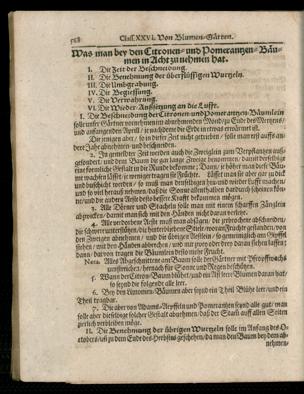 568 Class. XXVI. Von Blumen-Gärten.
Was man bey den Citronen- und Pomerantzen-Bäu-
men in Acht zu nehmen hat.
I. Die Zeit der Beschneidung.
II. Die Benehmung der überflüssigen Wurzeln.
III. Die Umbgrabung.
IV. Die Begiessung.
V. Die Verwahrung.
VI. Die Wieder-Außsetzung an die Lufft.
I. Die Beschneidung der Citronen und Pomerantzen-Bäumlein
solle unser Gärtner vornehmen in abnehmenden Mond / zu Ende des Mertzens /
und anfangenden April / je nachdeme die Erde in etwas erwärmet ist.
Die jenigen aber / so in dieser Zeit nicht getrieben / solle man erst auff das an-
dere Jahr abnehmen und beschneiden.
2. In gemeldter Zeit werden auch die Zweiglein zum Verpfantzen
gesündert / und
eine förmliche Gestalt in die Runde bekomme; Dann / je höher man diese Bäu-
me wachsen lässet / je weniger tragen sie Früchte.
und buschicht worden / so muß man denselbigen
und so viel heraus nehmen, daß die Sonne allenthalben dardurch scheinen kön-
ne / und die andern Aeste desto besser Krafft bekommen mögen.
3. Alle Dörner und Stacheln solle man mit einem scharffen Zänglein
abzwicken / damit man sich mit den Händen nicht daran verletze.
4. Alle verdorbene Aeste muß man absägen / die zerbrochene abschneiden,
die schwere unterstützen, die
den Zweigen abnehmen / und die übrigen Aestlein / so gemeiniglich am Gipffel
stehen / mit den Händen abbrechen / und nur zwey oder drey daran stehen lassen;
dann / davon tragen die Bäumlein desto mehr Frucht.
Nota. Alles Abgeschnittene am Baum solle der Gärtner mit Pfropffwachs
umstreichen / hernach für Sonne und Regen beschützen.
5. Wann der Citronen Baum blühet / und ein Ast leer Blumen daran hat /
so seynd die folgende alle leer.
6. Bey den Limonien-Bäumen aber seynd ein Theil Blüthe leer / und ein
Theil tragbar.
7. Die aber von Adams-Aepffeln und Pomerantzen seynd alle gut / man
solle aber dieselbige solcher Gestalt abnehmen, daß der Staub auff allen Seiten
zierlich verbleiben möge.
II. Die Benehmung der übrigen Wurtzeln solle im Anfang des Oc-
tobers / als zu dem Ende des Herbstes geschehen / da man den Baum bey dem ab-
nehmen-